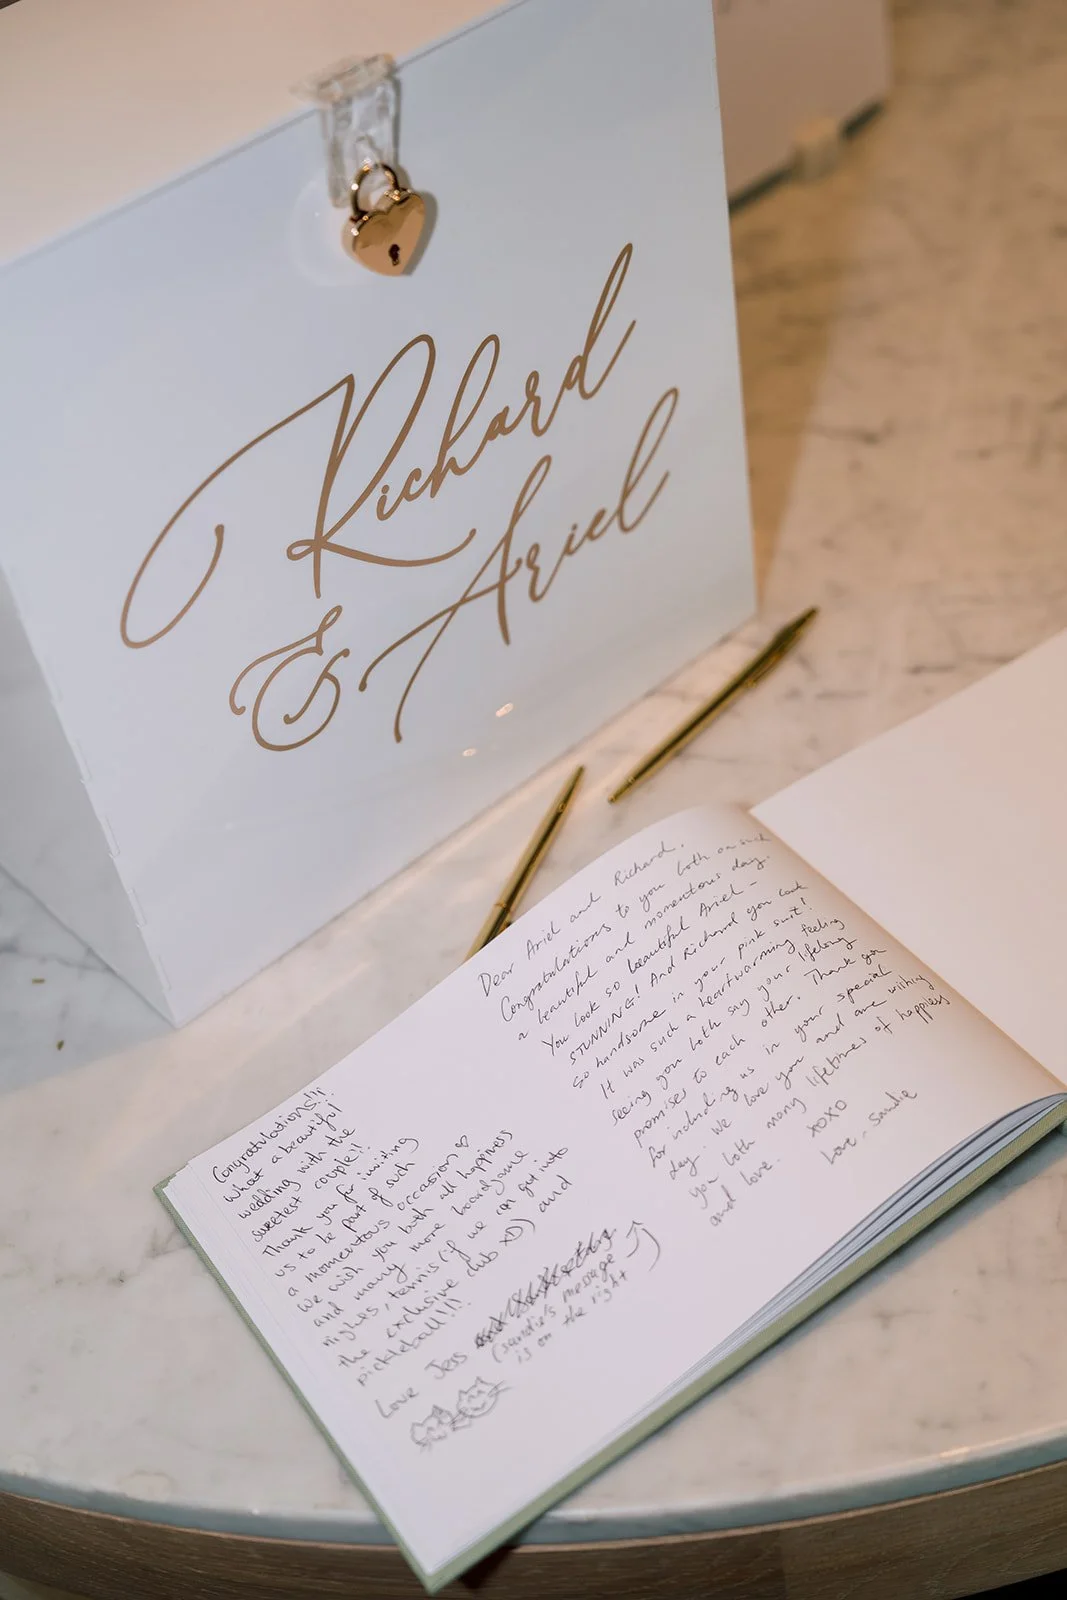 Richard
& Ariel
Congratulations!!
What a beautiful
wedding with the
sweetest couple!!
Thank you for inviting
us to be part of such
a momentous occasion ♡
We wish you both all happiness
and many more boardgame
nights, tennis (if we can get into
the exclusive club XD) and
pickleball!!!
Love Jess
(Sandie's message
is on the right
Dear Ariel and Richard,
Congratulations to you both on such
a beautiful and momentous day.
You look so beautiful Ariel –
STUNNING! And Richard you look
so handsome in your pink suit!
It was such a heartwarming feeling
seeing you both say your lifelong
promises to each other. Thank you
for including us in your special
day. We love you and are wishing
you both many lifetimes of happiness
and love.
xoxo
Love, Sandie